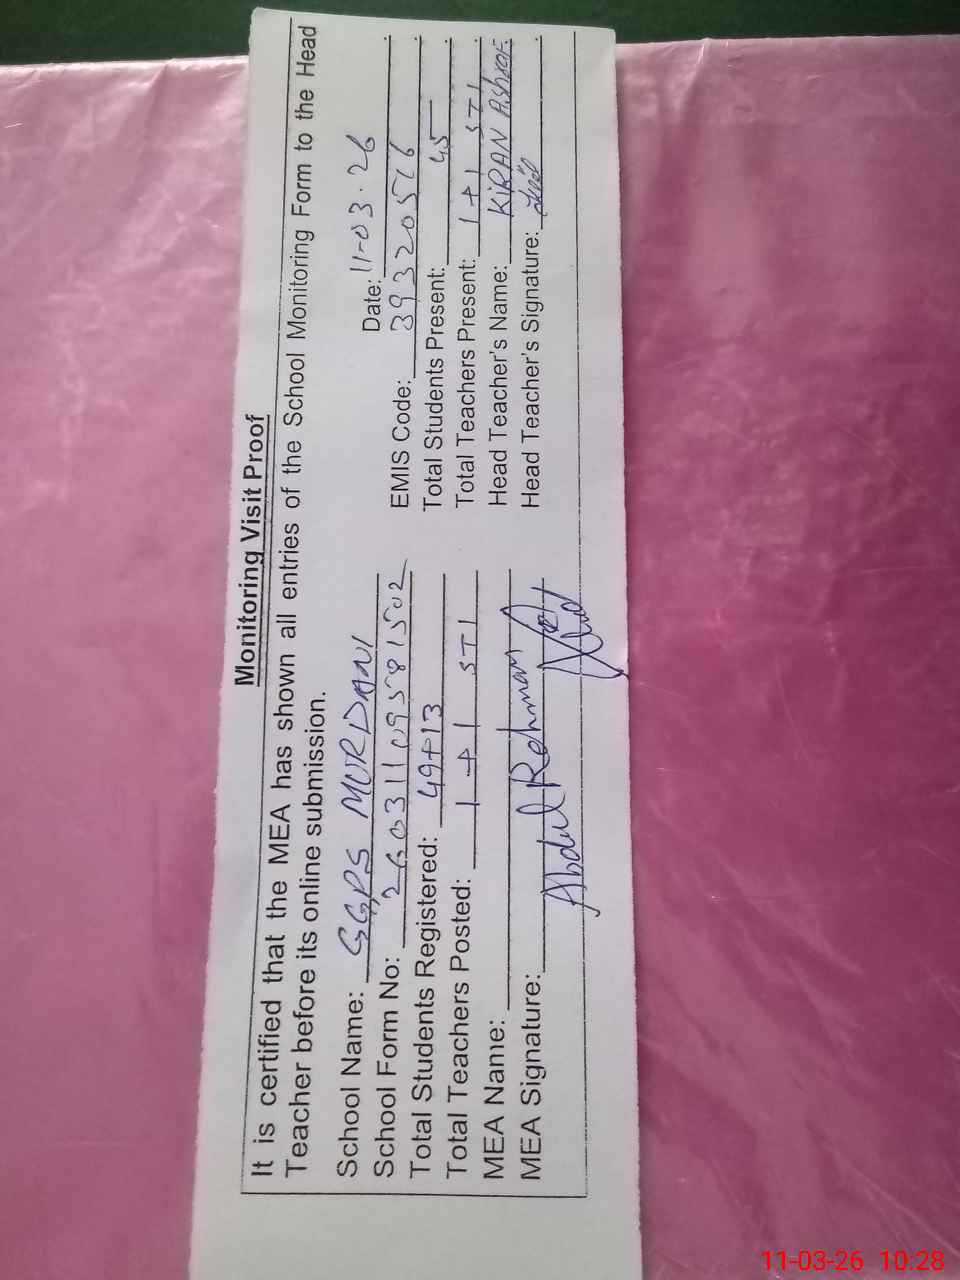 Monitoring Visit Proof
It is certified that the MEA has shown all entries of the School Monitoring Form to the Head
Teacher before its online submission.
Date: 11-03-26
School Name: GGPS MURDANI
EMIS Code: 39320516
School Form No: 26031109581502
Total Students Present: 45
Total Students Registered: 49+13
Total Teachers Present: 1+1 STI
Total Teachers Posted: 1+1 STI
Head Teacher's Name: KIRAN Ashraf
MEA Name: Abdul Rehman
Head Teacher's Signature:
MEA Signature:
11-03-26 10:28